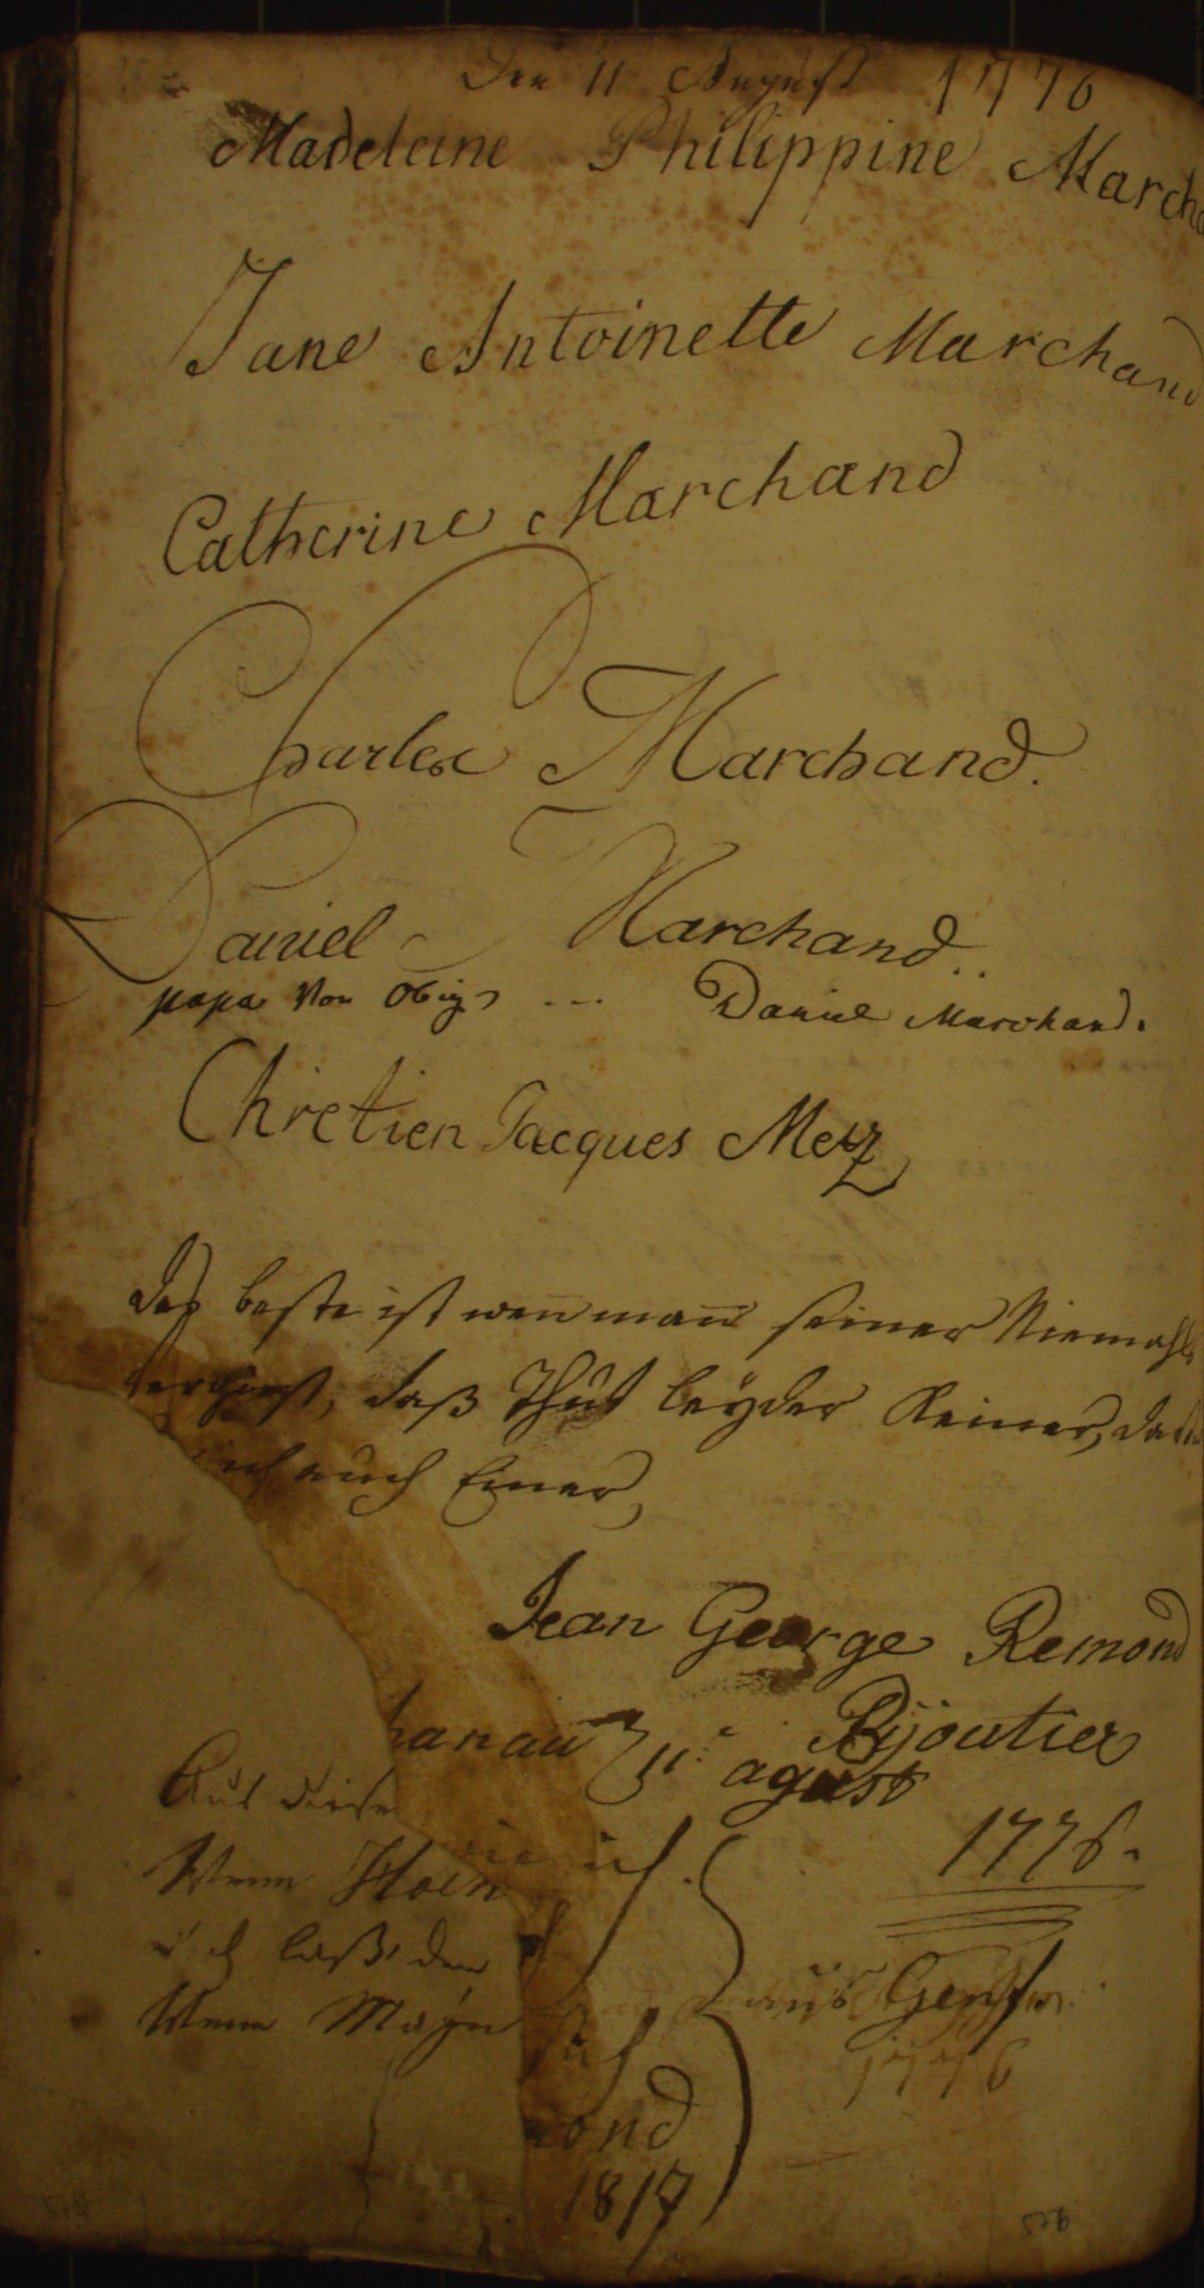 Den 11 August 1776
Madeleine Philippine Marcha
Jane Antoinette Marchand
Catherine Marchand
Charles Marchand.
Daniel Marchand..
papa von obige --- Daniel Marchand.
Chretien Jacques Metz
Das beste ist wen man seiner Niemahls
vergiest, daß Thut leyder Keiner,
ich auch Einer,
Jean George Remond
Bijoutier
hanau 11: agust
1776.
Auf diese
Wenn ich.
Ich laß den
Wenn
aus Genf
1776
ond
1817